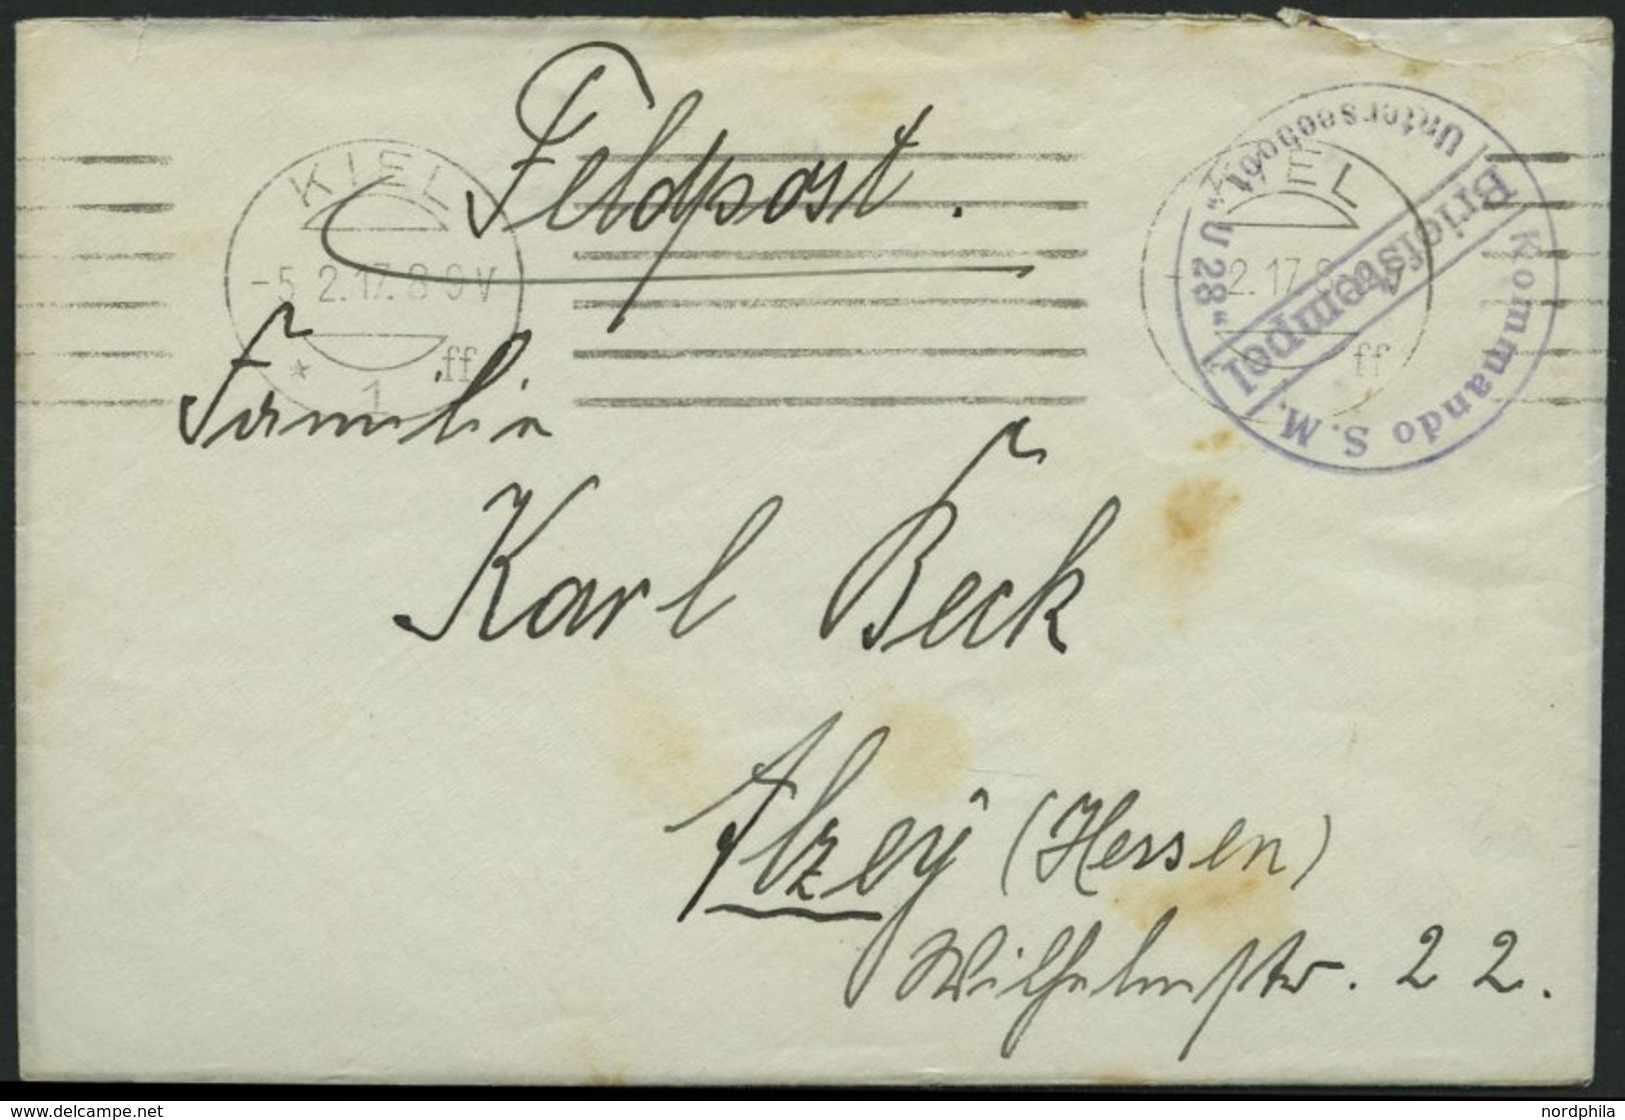 Feldpost.
KIEL
-5.2.17.8-9V
* 1 ff
KIEL
2.17.8-9V
ff
Kommando S.M. Unterseeboot „U 28“
Briefstempel
Familie
Karl Beck
Alzey (Hessen)
Wilhelmstr. 22.
www.delcampe.net
nordphila